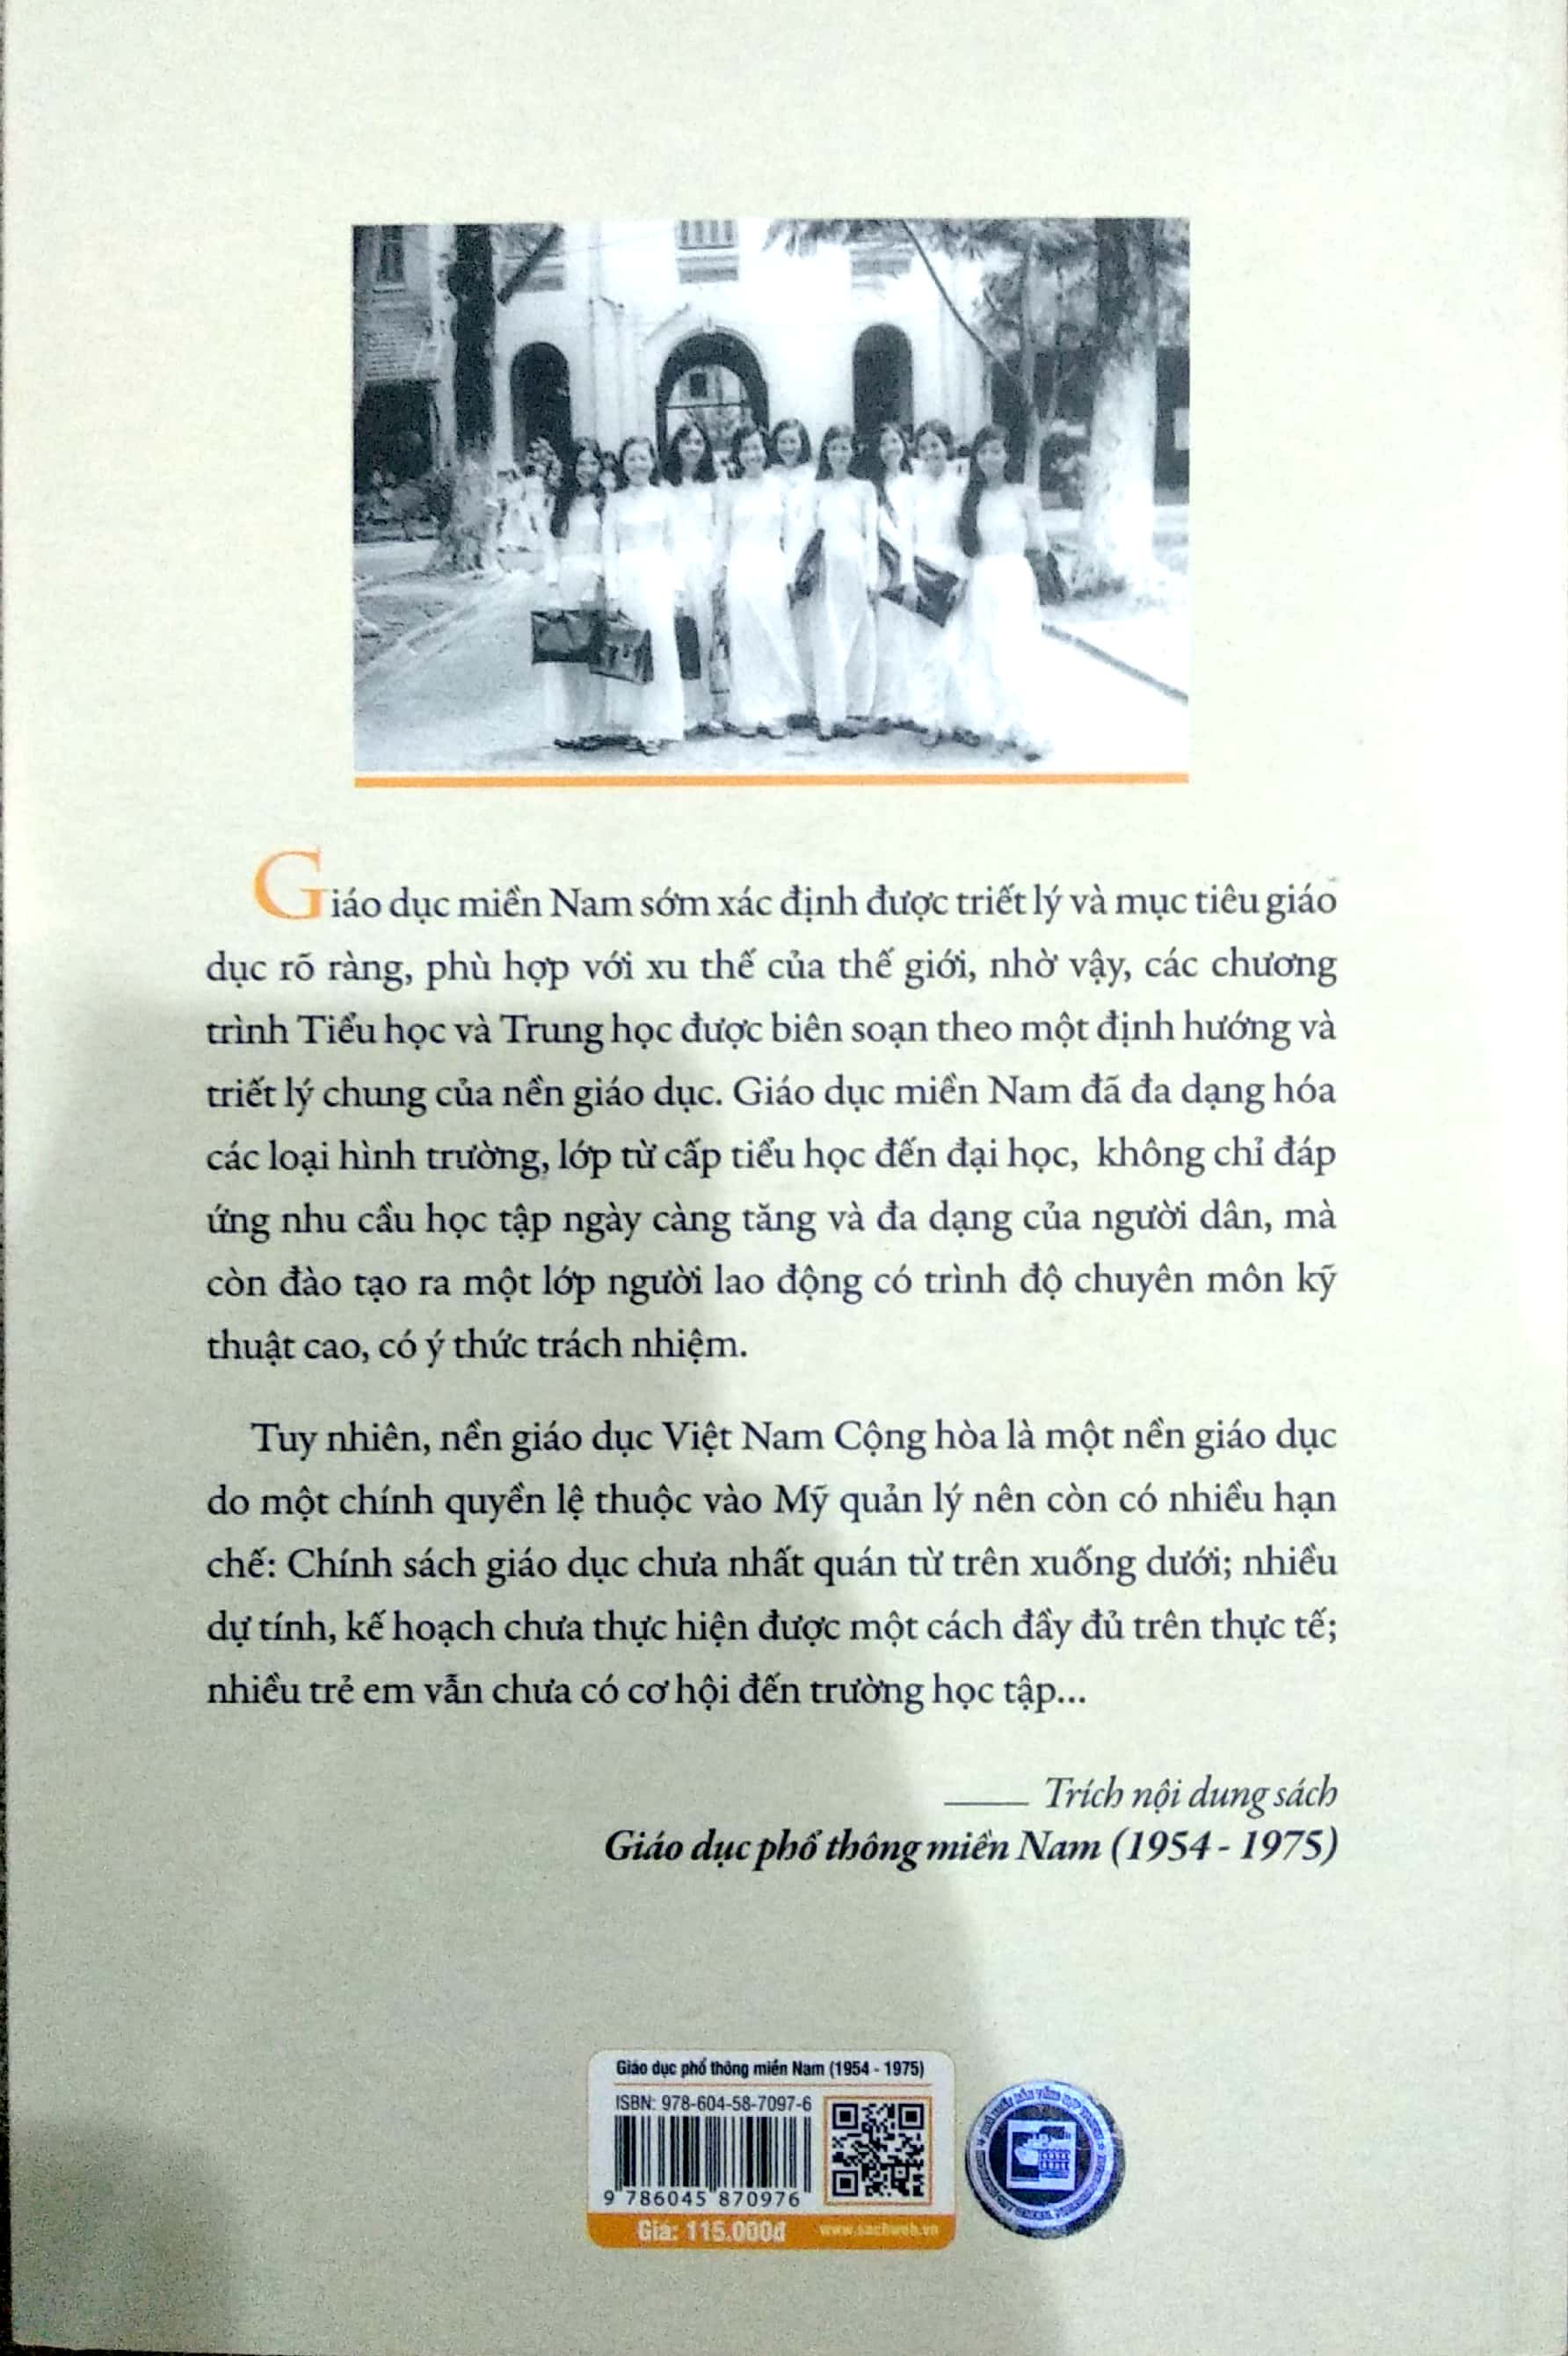 Giáo dục miền Nam sớm xác định được triết lý và mục tiêu giáo
dục rõ ràng, phù hợp với xu thế của thế giới, nhờ vậy, các chương
trình Tiểu học và Trung học được biên soạn theo một định hướng và
triết lý chung của nền giáo dục. Giáo dục miền Nam đã đa dạng hóa
các loại hình trường, lớp từ cấp tiểu học đến đại học, không chỉ đáp
ứng nhu cầu học tập ngày càng tăng và đa dạng của người dân, mà
còn đào tạo ra một lớp người lao động có trình độ chuyên môn kỹ
thuật cao, có ý thức trách nhiệm.
Tuy nhiên, nền giáo dục Việt Nam Cộng hòa là một nền giáo dục
do một chính quyền lệ thuộc vào Mỹ quản lý nên còn có nhiều hạn
chế: Chính sách giáo dục chưa nhất quán từ trên xuống dưới; nhiều
dự tính, kế hoạch chưa thực hiện được một cách đầy đủ trên thực tế;
nhiều trẻ em vẫn chưa có cơ hội đến trường học tập...
Trích nội dung sách
Giáo dục phổ thông miền Nam (1954 - 1975)
Giáo dục phổ thông miền Nam (1954 - 1975)
ISBN: 978-604-58-7097-6
9 786045 870976
Giá: 115.000đ www.sachweb.vn